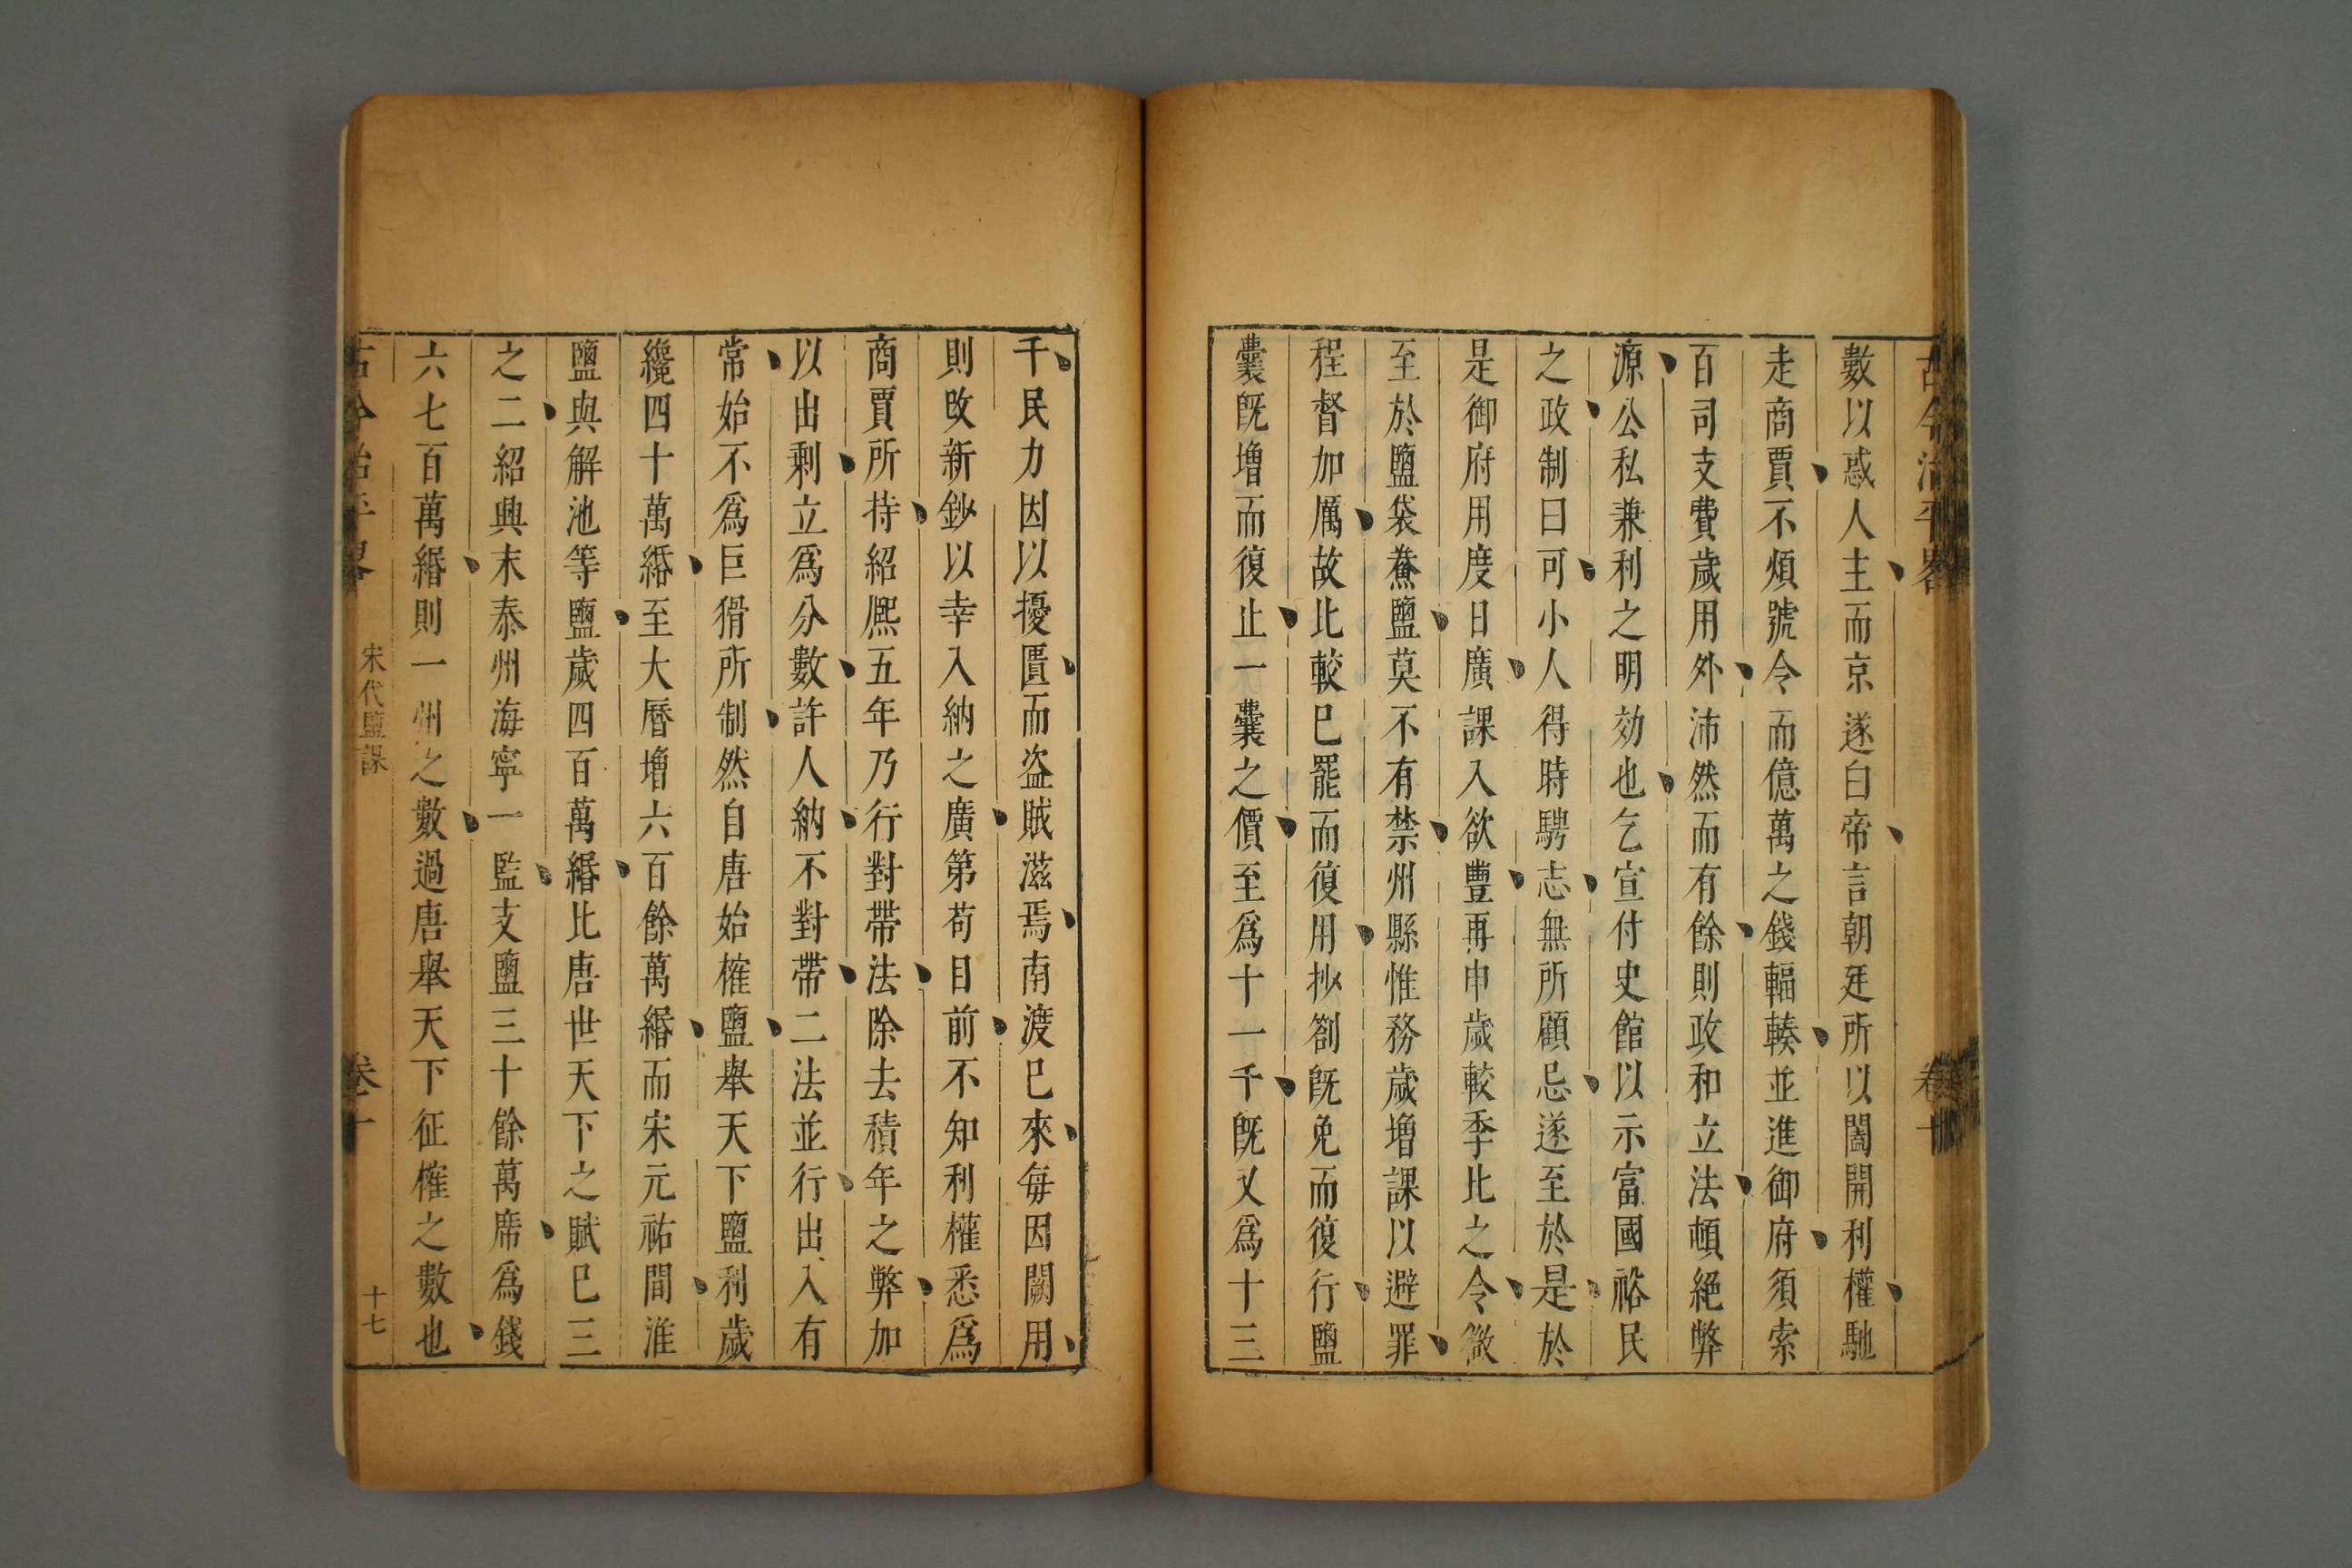 古今治平畧 卷十
數以惑人主而京遂白帝言朝廷所以闔開利權馳
走商賈不煩號令而億萬之錢輻輳並進御府須索
百司支費歲用外沛然而有餘則政和立法頓絕弊
源公私兼利之明効也乞宣付史館以示富國裕民
之政制曰可小人得時騁志無所顧忌遂至於是於
是御府用度日廣課入欲豐再申歲較季比之令徵
至於鹽袋鯗鹽莫不有禁州縣惟務歲增課以避罪
程督加厲故比較已罷而復用抄劄既免而復行鹽
囊旣增而復止一囊之價至爲十一千旣又爲十三
千民力因以擾匱而盗賊滋焉南渡已來每因闕用
則改新鈔以幸入納之廣第苟目前不知利權悉爲
商賈所持紹熈五年乃行對帶法除去積年之弊加
以出剩立爲分數許人納不對帶二法並行出入有
常始不爲巨猾所制然自唐始榷鹽舉天下鹽利歲
纔四十萬緡至大曆增六百餘萬緡而宋元祐間淮
鹽與解池等鹽歲四百萬緡比唐世天下之賦已三
之二紹興末泰州海寧一監支鹽三十餘萬席爲錢
六七百萬緡則一州之數過唐舉天下征榷之數也
古今治平畧 宋代鹽課 卷十 十七